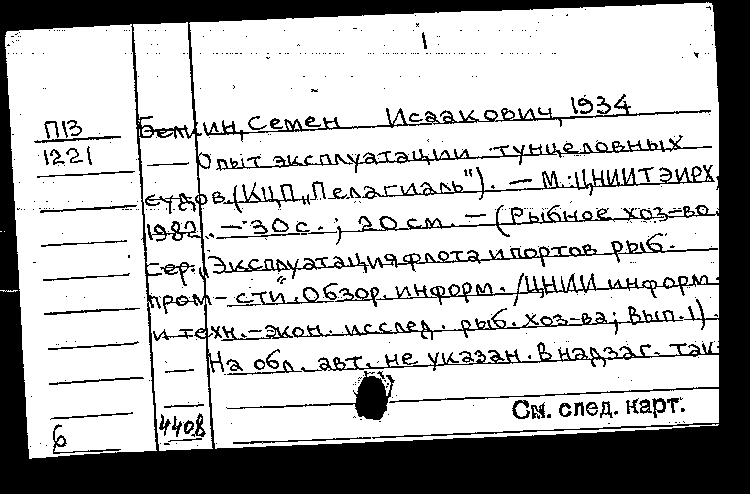 1
П13 Белкин, Семен Исаакович, 1934
1221 — Опыт эксплуатации тунцеловных
судов. (КЦП „Пелагиаль"). — М.: ЦНИИТЭИРХ,
1982. — 30 с. ; 20 см. — (Рыбное хоз-во.
Сер.: „Эксплуатация флота и портов рыб.
пром-сти". Обзор. информ. / ЦНИИ информ.
и техн.-экон. исслед. рыб. хоз-ва; Вып. 1).
— На обл. авт. не указан. В надзаг. так
См. след. карт.
6 4408